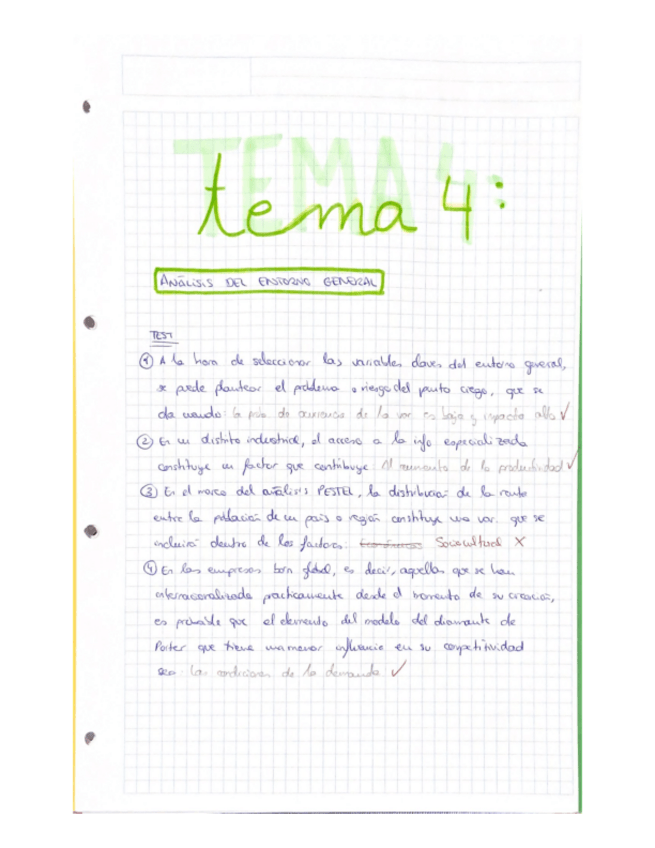 TEMA 4:
tema 4:
ANÁLISIS DEL ENTORNO GENERAL
TEST
① A la hora de seleccionar las variables claves del entorno general,
se puede plantear el problema o riesgo del punto ciego, que se
da cuando: la prob. de ocurrencia de la var. es baja y impacto alto ✓
② En un distrito industrial, el acceso a la info especializada
constituye un factor que contribuye: Al aumento de la productividad ✓
③ En el marco del análisis PESTEL, la distribución de la renta
entre la población de un país o región constituye una var. que se
incluirá dentro de los factores: Económicos Sociocultural X
④ En las empresas born global, es decir, aquellas que se han
internacionalizado prácticamente desde el momento de su creación,
es probable que el elemento del modelo del diamante de
Porter que tiene una menor influencia en su competitividad
sea: Las condiciones de la demanda ✓